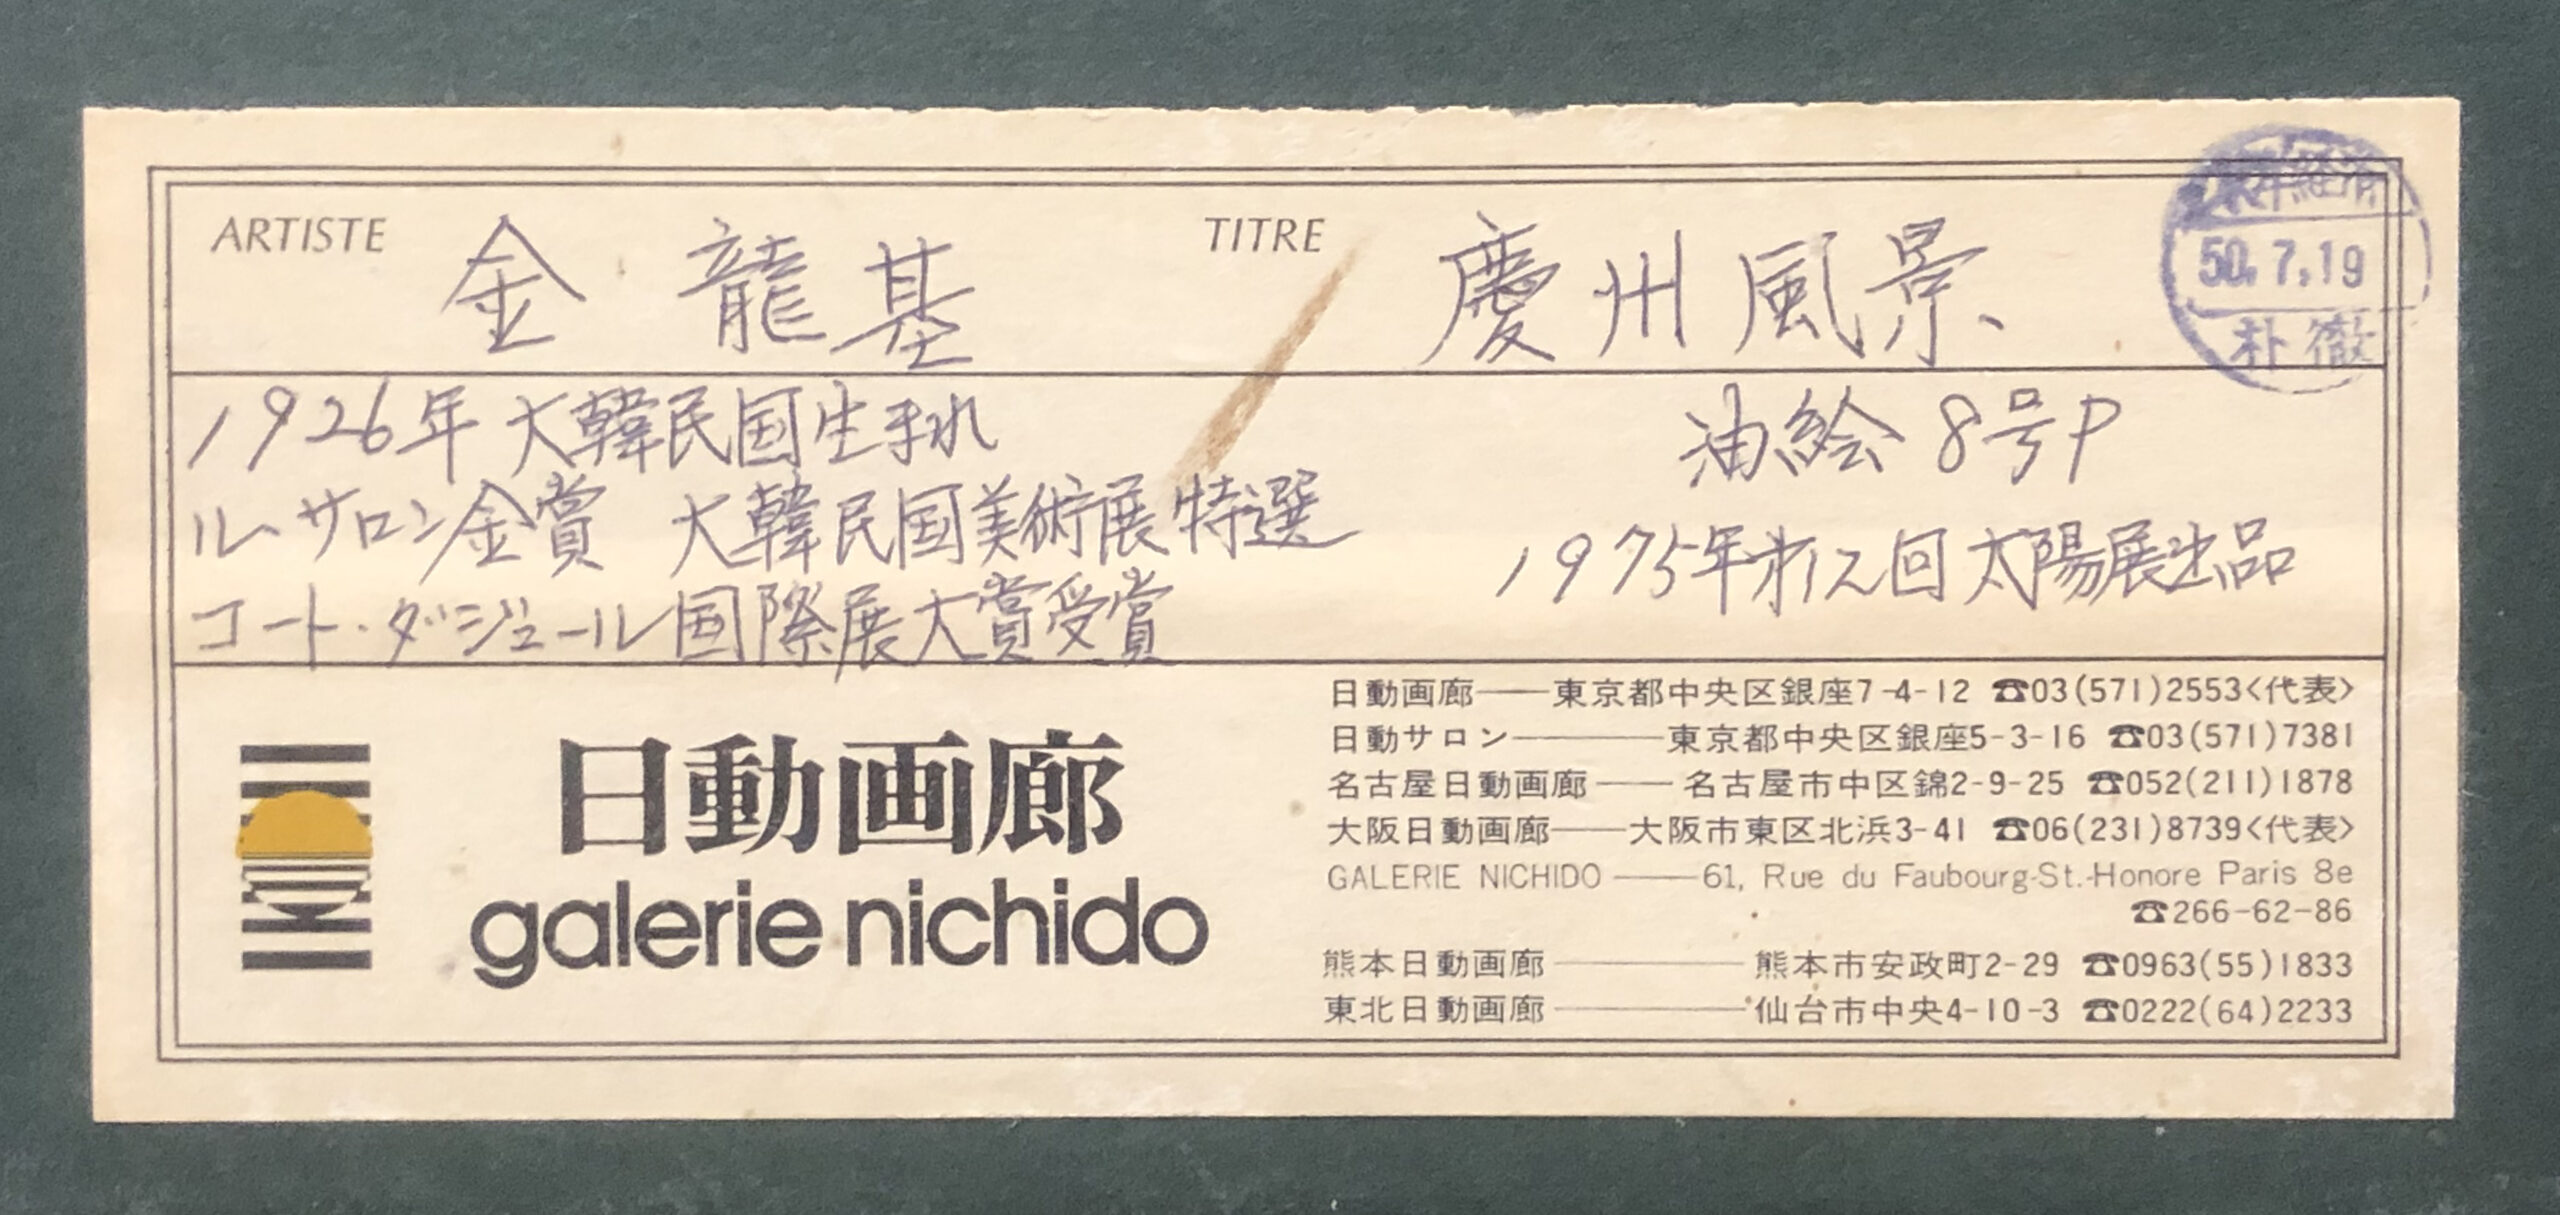 ARTISTE 金龍基 TITRE 慶州風景、
経済
50.7.19
朴徹
1926年大韓民国生まれ
ル・サロン金賞 大韓民国美術展特選
コート・ダジュール国際展大賞受賞
油絵 8号P
1975年第12回太陽展出品
日動画廊
galerie nichido
日動画廊——東京都中央区銀座7-4-12 ☎03(571)2553<代表>
日動サロン————東京都中央区銀座5-3-16 ☎03(571)7381
名古屋日動画廊——名古屋市中区錦2-9-25 ☎052(211)1878
大阪日動画廊——大阪市東区北浜3-41 ☎06(231)8739<代表>
GALERIE NICHIDO——61, Rue du Faubourg-St.-Honore Paris 8e
☎266-62-86
熊本日動画廊————熊本市安政町2-29 ☎0963(55)1833
東北日動画廊————仙台市中央4-10-3 ☎0222(64)2233